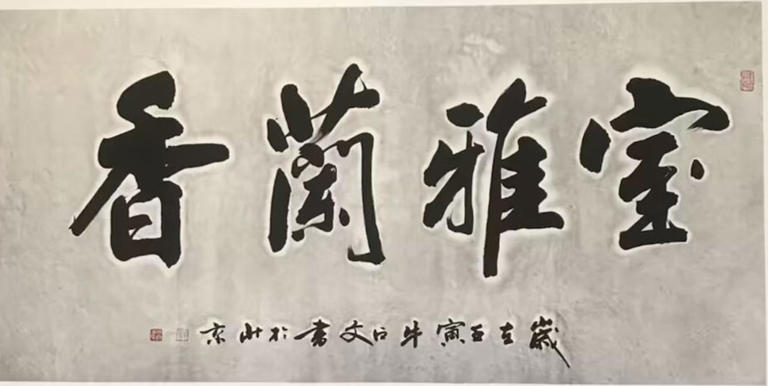 室雅蘭香
歲在壬寅牛口文書於北京